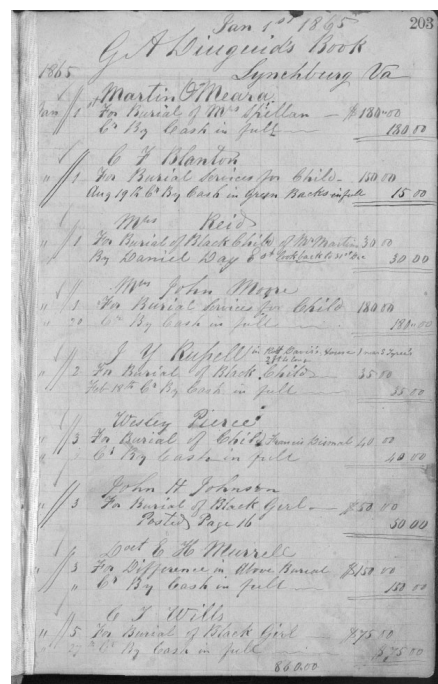 Jan 1st 1865 203
G A Diuguid's Book
1865 Lynchburg Va
Martin O'Meara
Jan 1st For Burial of Mrs Spillan $180.00
Cr By Cash in full 180.00
C F Blanton
" 1 For Burial Services for Child 150.00
Aug 19th Cr By Cash in Green Backs in full 15.00
Mrs Reid
" 1 For Burial of Black Child of Mr Martin 30.00
By Daniel Day 30.00
Mrs John Moore
" 1 For Burial Services for Child 180.00
" 20 Cr By Cash in full 180.00
J Y Russell in Davis House
" 2 For Burial of Black Child 35.00
Feb 18th Cr By Cash in full 35.00
Wesley Pierce
" 3 For Burial of Child Francis Dismal 40.00
" Cr By Cash in full 40.00
John H Johnson
" 3 For Burial of Black Girl $50.00
Posted Page 16 50.00
Doct E H Murrell
" 3 For Difference in Above Burial $150.00
" " Cr By Cash in full 150.00
C T Wills
" 5 For Burial of Black Girl $75.00
" Cr By Cash in full $75.00
860.00